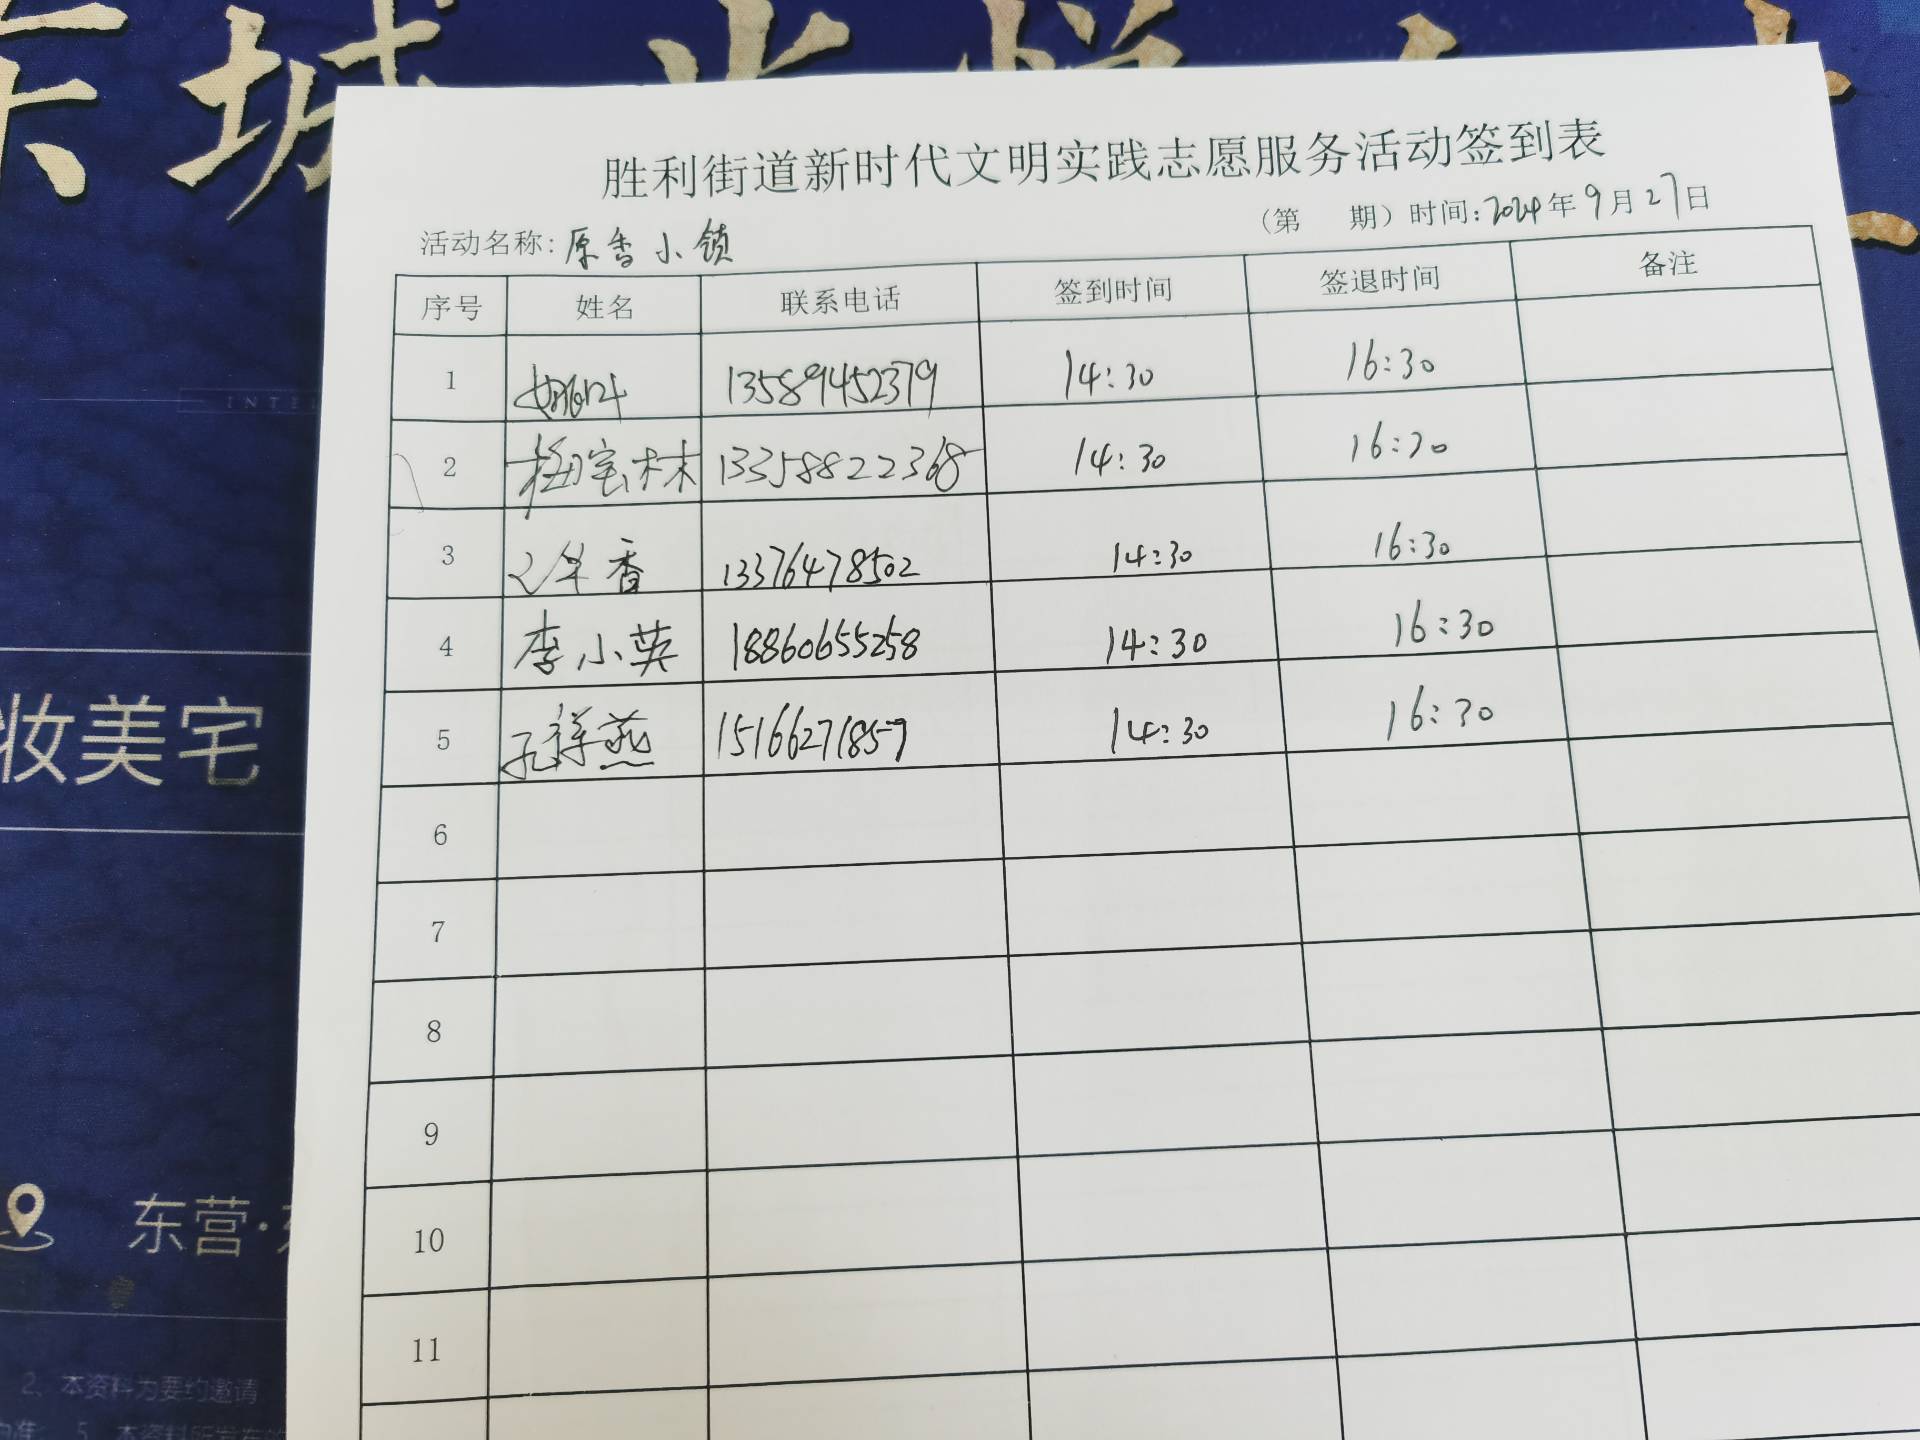 东城
胜利街道新时代文明实践志愿服务活动签到表
(第 期) 时间:2024年9月27日
活动名称:原香小镇
序号 姓名 联系电话 签到时间 签退时间 备注
1 13589452379 14:30 16:30
2 宝林 13358822368 14:30 16:30
3 香 13376478502 14:30 16:30
4 李小英 18860655258 14:30 16:30
5 孔祥燕 15166271857 14:30 16:30
6
7
8
9
10
11
INTE
妆美宅
东营·
2、本资料为要约邀请